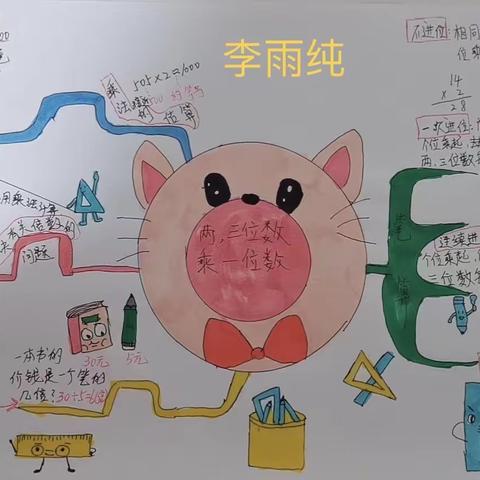 李雨纯
乘法
505×2≈1000
500 约等号
估算
用乘法计算
有关倍数的
问题
两、三位数
乘一位数
一本书的
价钱是一个笔的
几倍?30÷5=6倍
30元
5元
笔算
不进位:相同
位乘
14
×2
28
一次进位:
个位乘起,
两、三位数
连续进
个位乘起,
三位数